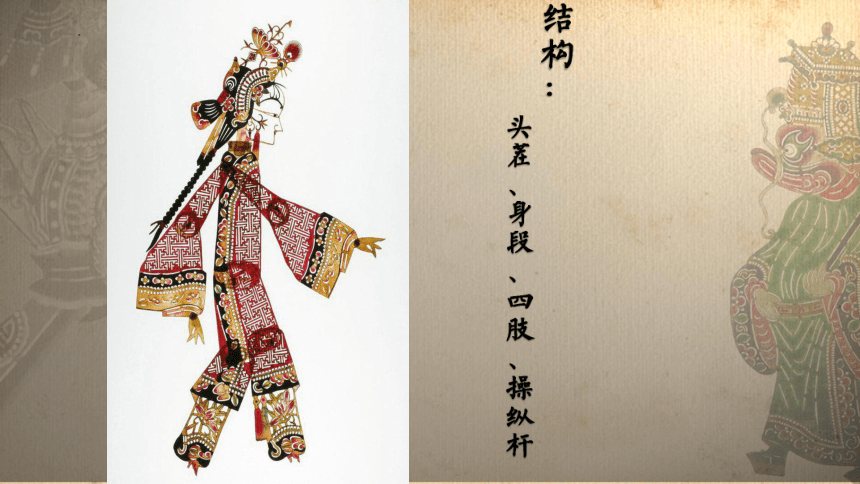 结构：
头茬、身段、四肢、操纵杆